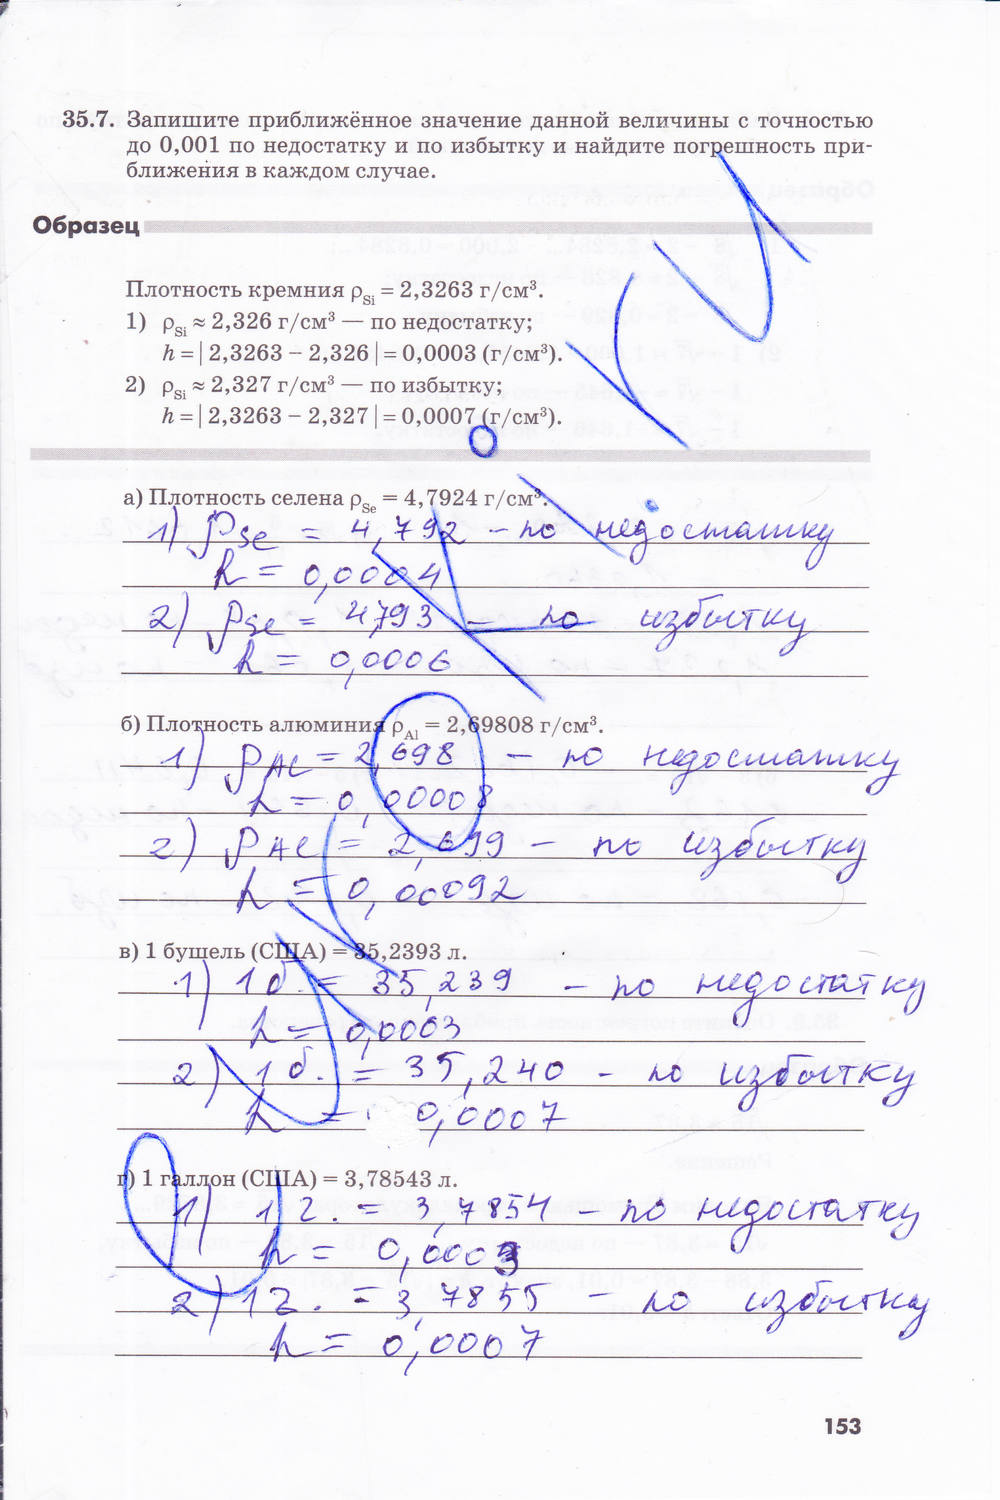 35.7. Запишите приближённое значение данной величины с точностью
до 0,001 по недостатку и по избытку и найдите погрешность при-
ближения в каждом случае.
Образец
Плотность кремния ρSi = 2,3263 г/см³.
1) ρSi ≈ 2,326 г/см³ — по недостатку;
h = | 2,3263 − 2,326 | = 0,0003 (г/см³).
2) ρSi ≈ 2,327 г/см³ — по избытку;
h = | 2,3263 − 2,327 | = 0,0007 (г/см³).
а) Плотность селена ρSe = 4,7924 г/см³.
1) ρSe = 4,792 – по недостатку
h = 0,0004
2) ρSe = 4793 – по избытку
h = 0,0006
б) Плотность алюминия ρAl = 2,69808 г/см³.
1) ρAl = 2,698 – по недостатку
h = 0,00008
2) ρAl = 2,699 – по избытку
h = 0,00092
в) 1 бушель (США) = 35,2393 л.
1) 1 б. = 35,239 – по недостатку
h = 0,0003
2) 1 б. = 35,240 – по избытку
h = 0,0007
г) 1 галлон (США) = 3,78543 л.
1) 1 г. = 3,7854 – по недостатку
h = 0,0003
2) 1 г. = 3,7855 – по избытку
h = 0,0007
153